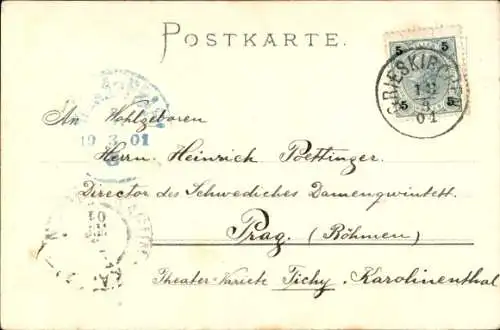 POSTKARTE.
5 5
5 5
GRIESKIRCHEN
18
3
01
An Wohlgeboren
19 3 01
Herrn Heinrich Poettinger
Director des Schwediches Damenqwintett
Prag. (Böhmen)
Theater-Varieté Tichy, Karolinenthal